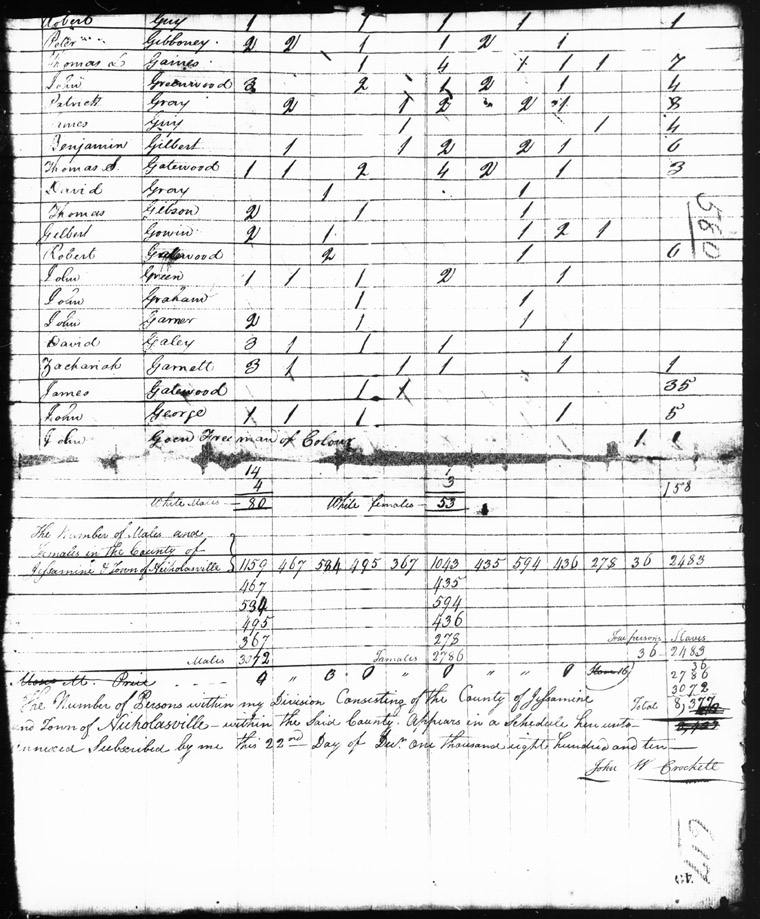 Robert Guy 1 1 1 1 1
Peter Gibboney 2 2 1 1 2 1
Thomas L Gaines 1 4 1 1 1 7
John Greenwood 3 2 1 2 1 4
Patrick Gray 2 1 2 2 1 8
James Guy 1 1 4
Benjamin Gilbert 1 1 2 2 1 6
Thomas S. Gatewood 1 1 2 4 2 1 3
David Gray 1 1
Thomas Gibson 2 1 1
580
Gilbert Gowin 2 1 1 2 1
Robert Gatewood 2 1 6
John Green 1 1 1 2 1
John Graham 1 1
John Garner 2 1 1
David Galey 3 1 1 1 1
Zachariah Garnett 3 1 1 1 1 1
James Gatewood 1 1 35
John George 1 1 1 1 5
John Goen Free man of Colour 1 1
14 1
4 3 158
White Males - 80 White females - 53
The Number of Males and
Females in the County of
Jessamine & Town of Nicholasville } 1159 467 584 495 367 1043 435 594 436 278 36 2483
467 435
584 594
495 436
367 278 Free persons Slaves
Males 3072 Females 2786 36 2483
36
Moses M. Price 0 " 3 0 0 " " 0 2786
3072
The Number of Persons within my Division Consisting of the County of Jessamine Total 8,377
and Town of Nicholasville - within the Said County. Appears in a Schedule here unto
annexed Subscribed by me this 22nd Day of Decr. one thousand eight hundred and ten
John W Crockett
617